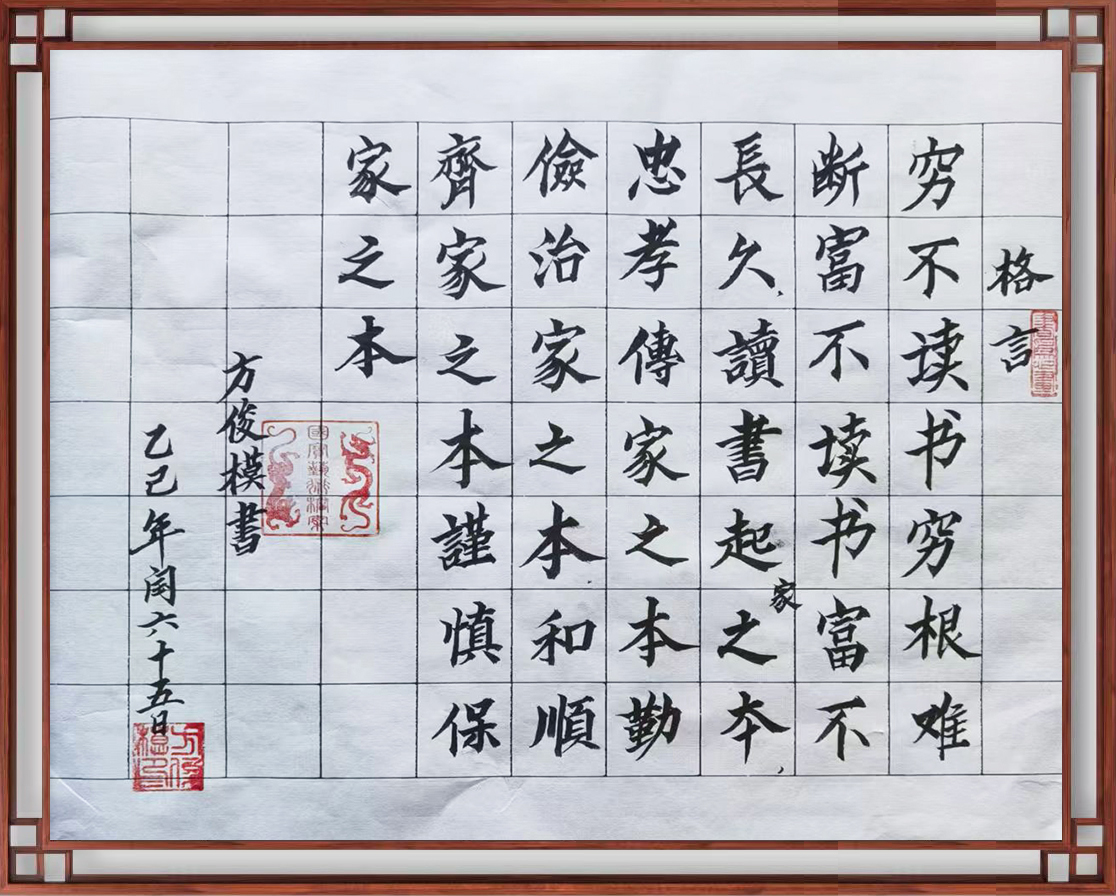 格言
穷不读书穷根难
断富不读书富不
長久讀書起家之本
忠孝傳家之本勤
儉治家之本和順
齊家之本謹慎保
家之本
方俊模書
乙巳年闰六十五日